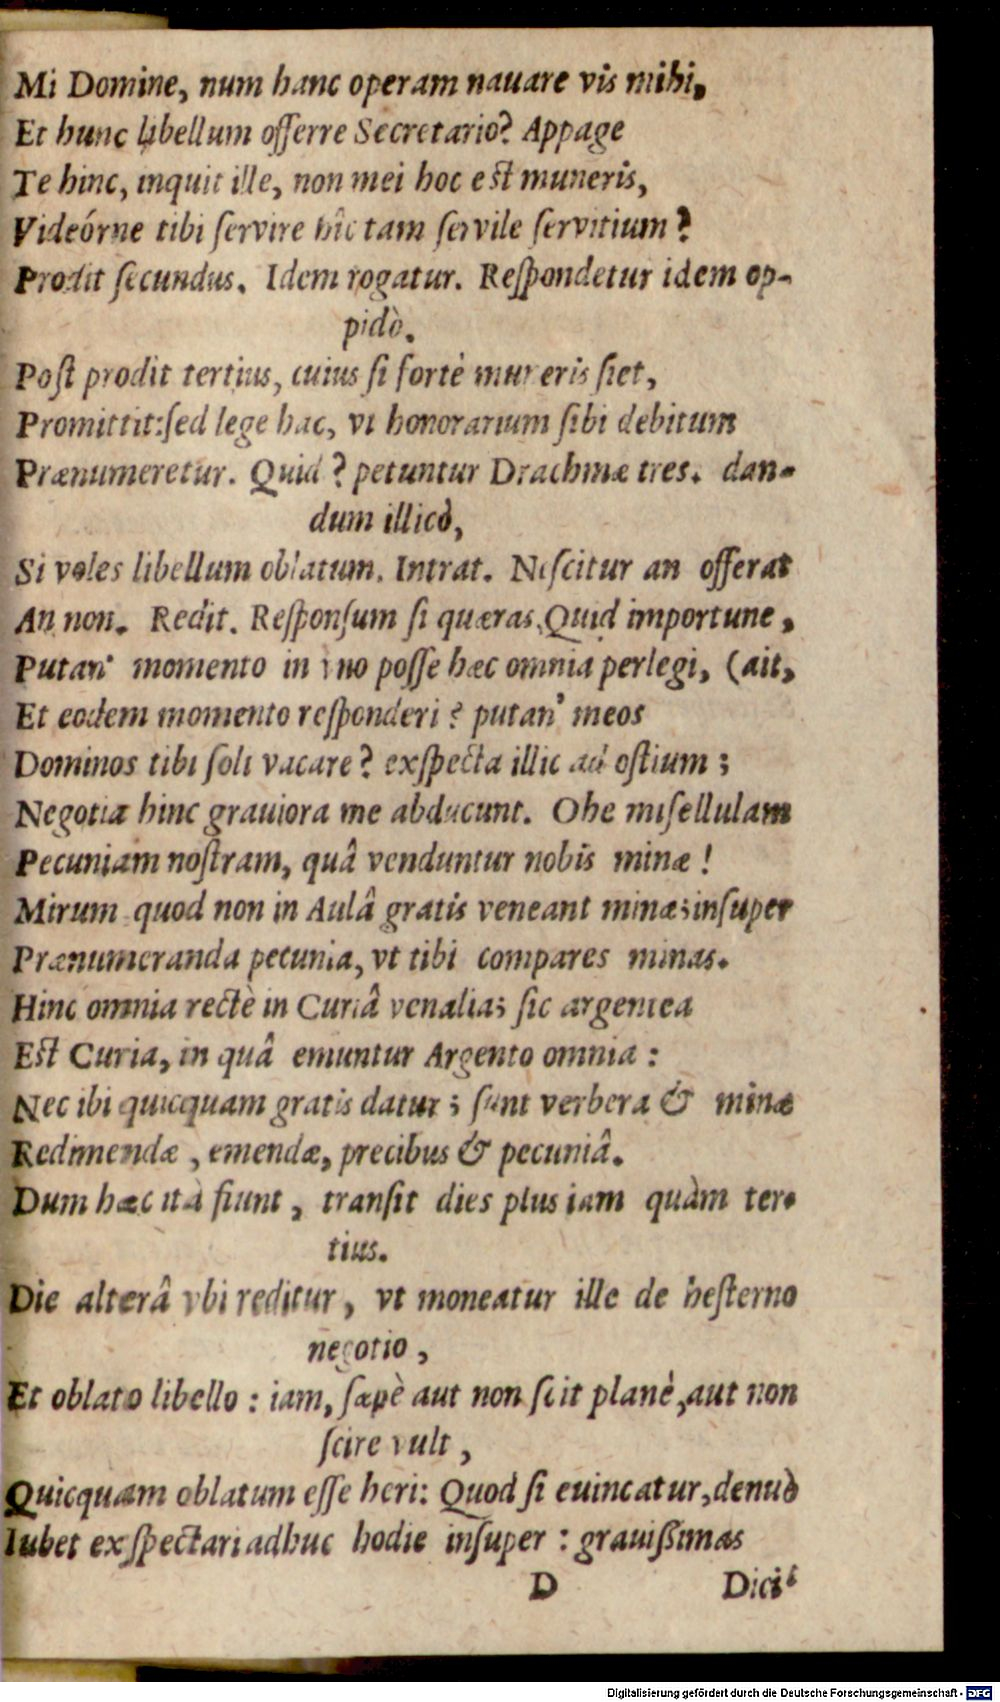 Mi Domine, num hanc operam nauare vis mihi,
Et hunc libellum offerre Secretario? Appage
Te hinc, inquit ille, non mei hoc est muneris,
Videórne tibi ſervire hîc tam ſervile ſervitium?
Prodit ſecundus. Idem rogatur. Reſpondetur idem op-
pidò.
Poſt prodit tertius, cuius ſi fortè muneris ſiet,
Promittit:ſed lege hac, vt honorarium ſibi debitum
Prænumeretur. Quid? petuntur Drachmæ tres. dan-
dum illicò,
Si voles libellum oblatum. Intrat. Neſcitur an offerat
An non. Redit. Reſponſum ſi quæras, Quid importune,
Putan' momento in vno poſſe hæc omnia perlegi, (ait,
Et eodem momento reſponderi? putan' meos
Dominos tibi ſoli vacare? exſpecta illic ad oſtium;
Negotia hinc grauiora me abducunt. Ohe miſellulam
Pecuniam noſtram, quâ venduntur nobis minæ!
Mirum quod non in Aulâ gratis veneant minæ; inſuper
Prænumeranda pecunia, vt tibi compares minas.
Hinc omnia rectè in Curiâ venalia; ſic argentea
Eſt Curia, in quâ emuntur Argento omnia:
Nec ibi quicquam gratis datur; ſunt verbera & minæ
Redimendæ, emendæ, precibus & pecuniâ.
Dum hæc ita fiunt, tranſit dies plus iam quàm ter-
tius.
Die alterâ vbi reditur, vt moneatur ille de heſterno
negotio,
Et oblato libello: iam, ſæpè aut non ſcit planè, aut non
ſcire vult,
Quicquam oblatum eſſe heri: Quod ſi euincatur, denuò
Iubet exſpectari adhuc hodie inſuper: grauiſſimas
D Dici-
Digitalisierung gefördert durch die Deutsche Forschungsgemeinschaft - DFG